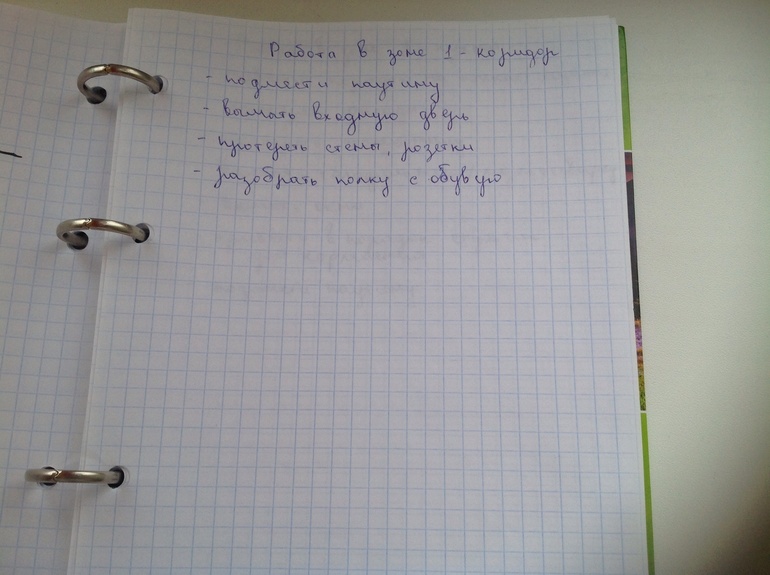 Работа в зоне 1 - коридор
- подмести паутину
- вымыть входную дверь
- протереть стены, розетки
- разобрать полку с обувью